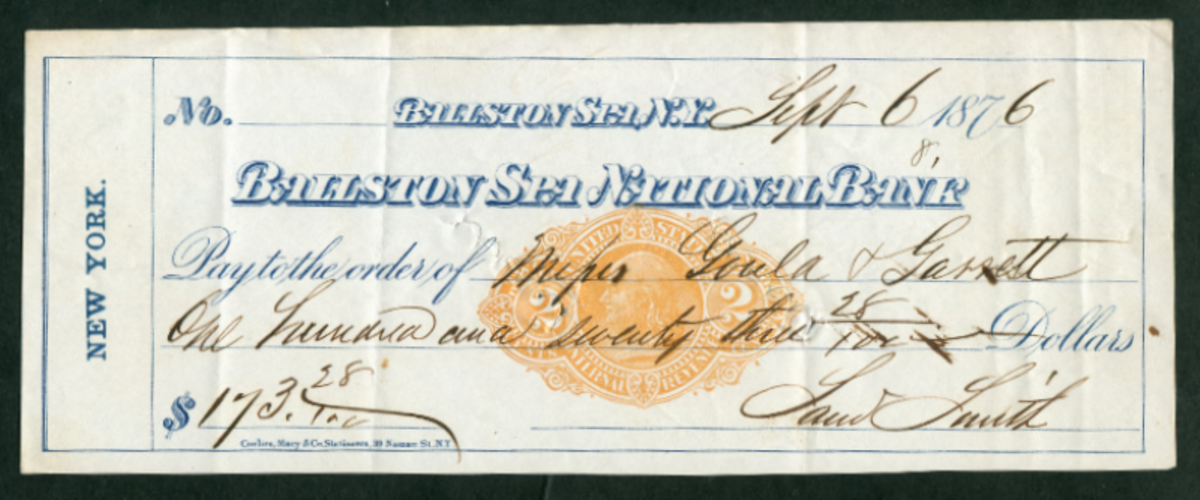 NEW YORK.
No. BALLSTON SPA, N.Y. Sept 6 1876
8,
BALLSTON SPA NATIONAL BANK
Pay to the order of Messrs Gould & Garrett
One hundred and seventy three 28/100 Dollars
$ 173.28/100 Saml Smith
UNITED STATES
2 2
INTERNAL REVENUE
Nassau St. N.Y.